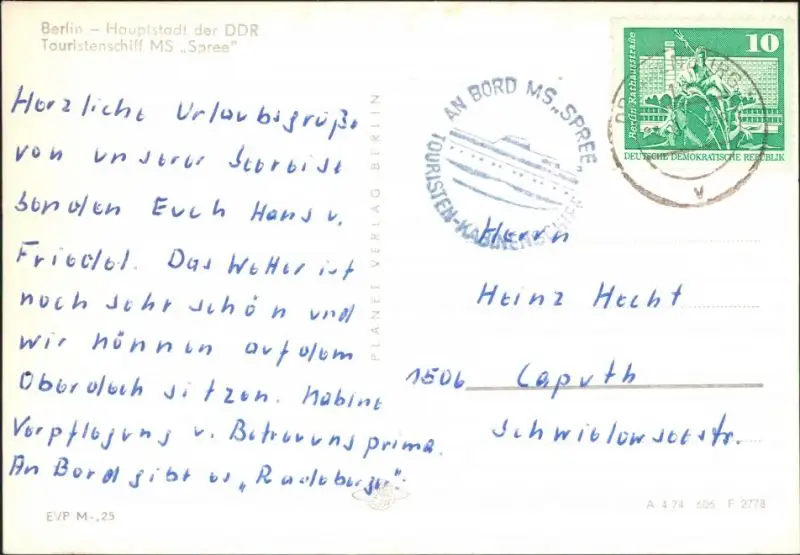 Berlin – Hauptstadt der DDR
Touristenschiff MS „Spree"
Herzliche Urlaubsgrüße
von unserer
senden Euch Hans u.
Friedel. Das Wetter ist
noch sehr schön und
wir können auf dem
Oberdeck sitzen. Kabine
Verpflegung u. Betreuung prima.
An Bord gibt es „Radeberger".
EVP M-,25
PLANET VERLAG BERLIN
AN BORD MS „SPREE"
TOURISTEN-KABINENSCHIFF
10
Berlin, Rathausstraße
DEUTSCHE DEMOKRATISCHE REPUBLIK
Herrn
Heinz Hecht
1506 Caputh
Schwielowseestr.
A 4 74 606 F 2778